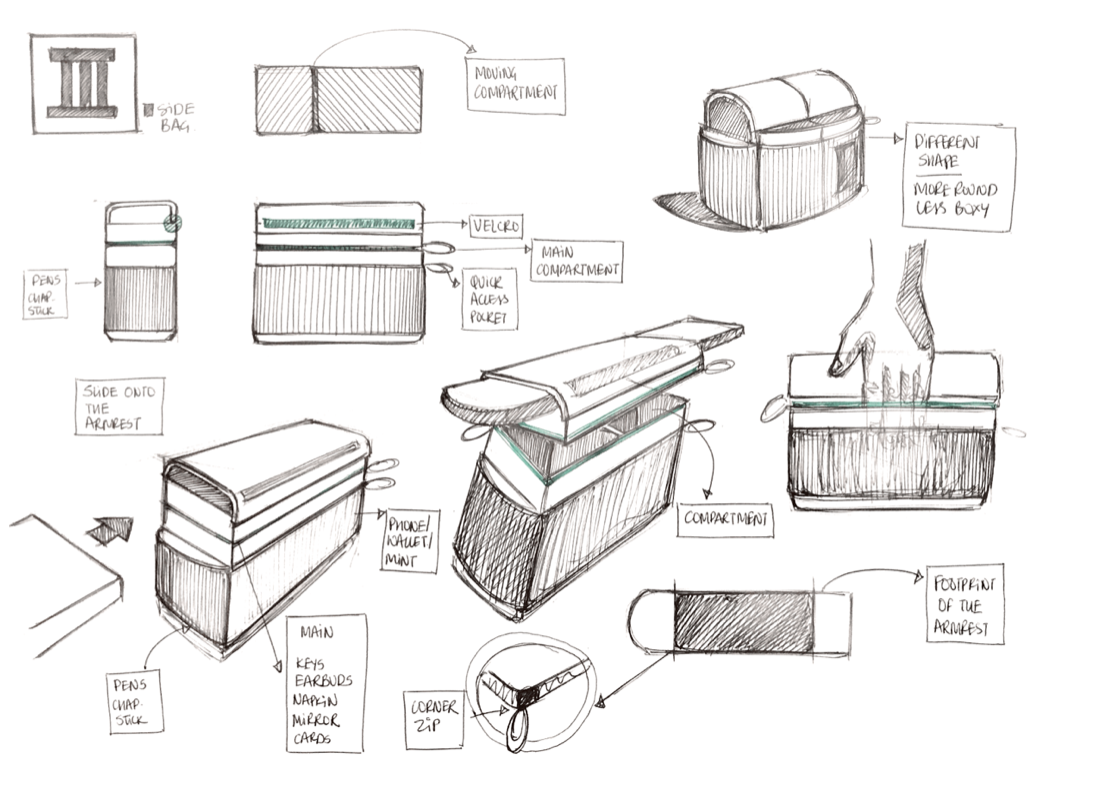 III
SIDE
BAG.
MOVING
COMPARTMENT
DIFFERENT
SHAPE
MORE ROUND
LESS BOXY
PENS
CHAP.
STICK
VELCRO
MAIN
COMPARTMENT
QUICK
ACCESS
POCKET
SLIDE ONTO
THE
ARMREST
PHONE/
WALLET/
MINT
COMPARTMENT
PENS
CHAP.
STICK
MAIN
KEYS
EARBUDS
NAPKIN
MIRROR
CARDS
CORNER
ZIP
FOOTPRINT
OF THE
ARMREST